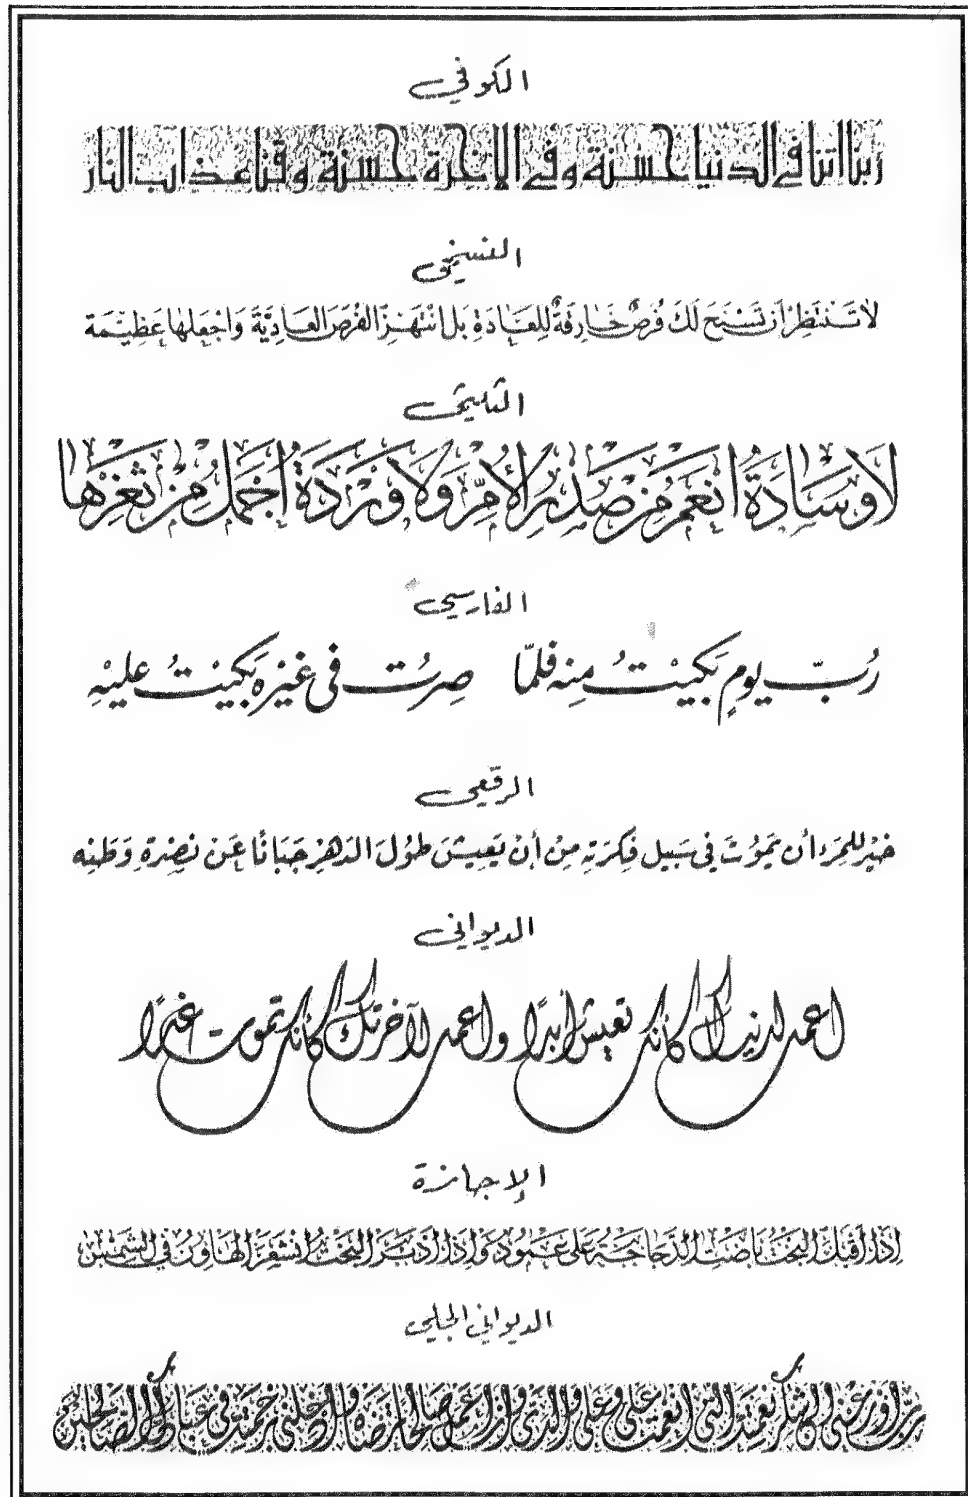 الكوفي
ربنا اتنا في الدنيا حسنة وفي الاخرة حسنة وقنا عذاب النار
النسخي
لَا تَنْتَظِرْ أَن تَسْنَحَ لَكَ فُرَصٌ خَارِقَةٌ لِلعَادَةِ بَل انْتَهِزِ الفُرَصَ العَادِيَّةَ وَاجْعَلهَا عَظِيْمَة
الثلثي
لَا وِسَادَةَ انْعَمُ مِنْ صَدْرِ الأُمِّ وَلَا وَرْدَةَ اجْمَلُ مِنْ ثَغْرِهَا
الفارسي
رُبّ يومٍ بَكَيْتُ مِنه فلمّا صِرتُ في غيْرِه بَكَيْتُ عليْهِ
الرقعي
خيْر للمَرء أن يَمُوْتَ في سَبيل فِكرَتِهِ مِنْ أنْ يَعِيْشَ طُوْلَ الدَهْرِ جَبَانًا عَنْ نصْرَةِ وَطَنِه
الديواني
اعمل لدنياك كأنك تعيش أبدًا واعمل لآخرتك كأنك تموت غدًا
الإجازة
إِذَا أَقْبَلَ البَخْتُ بَاضَتِ الدَّجَاجَةُ عَلَى عَمُوْد وَإِذَا أَدْبَرَ البَخْتُ انْشَقَرَ الهَاوُنُ في الشَّمْسِ
الديواني الجلي
رب أوزعني أن أشكر نعمتك التي أنعمت علي وعلى والدي وأن أعمل صالحا ترضاه وأدخلني برحمتك في عبادك الصالحين